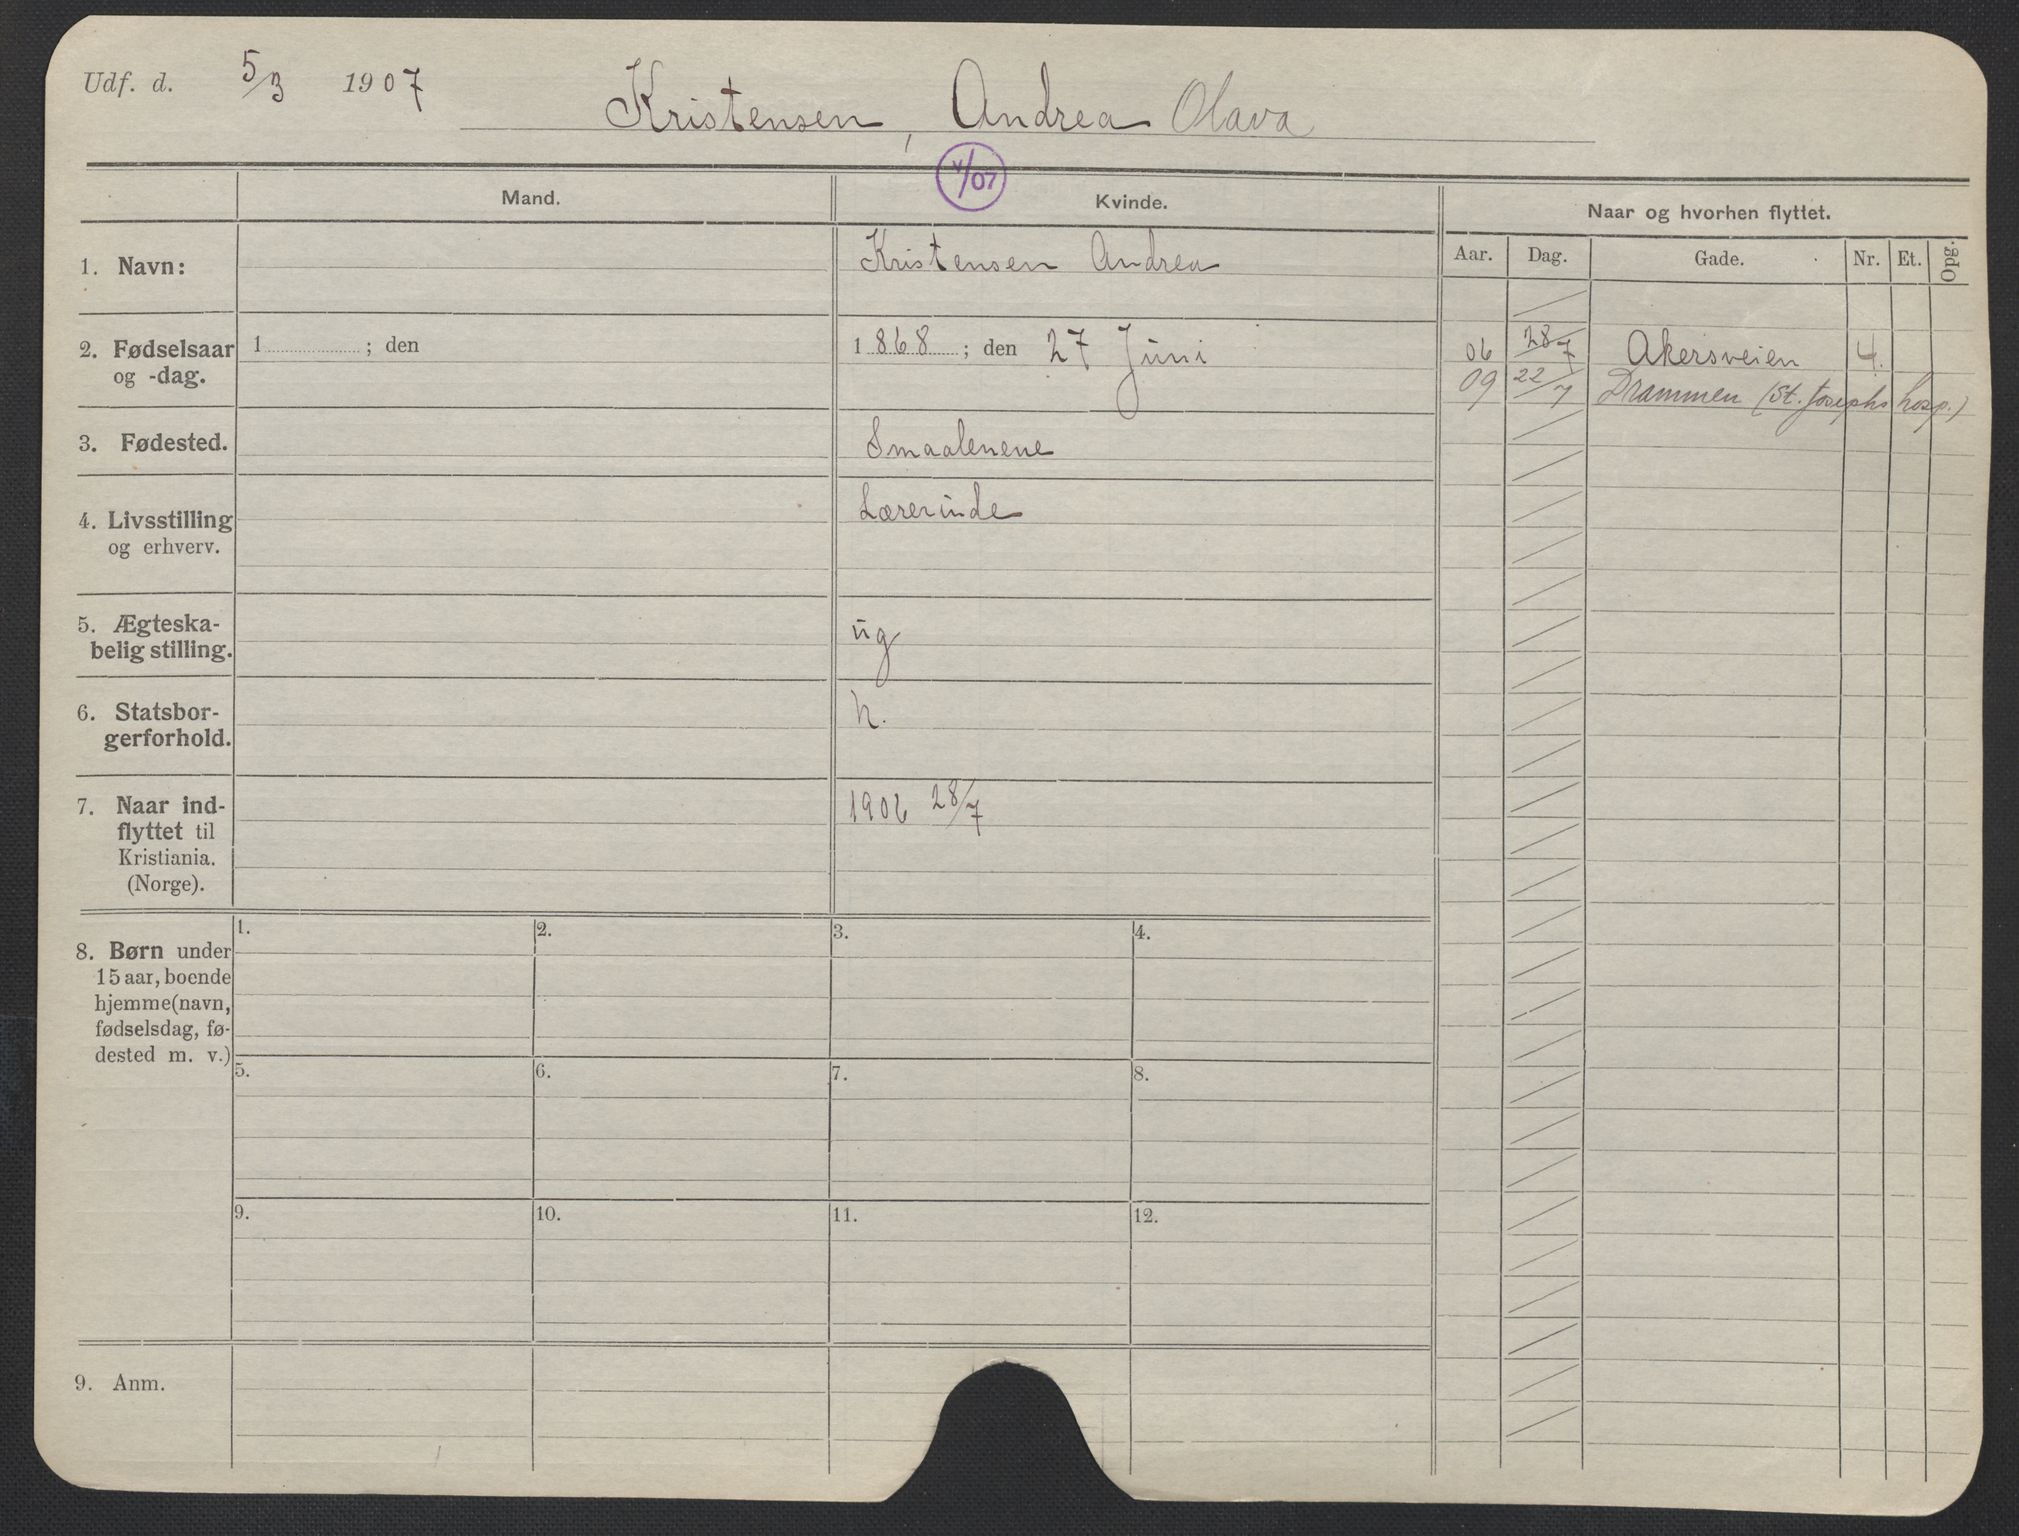 Udf. d. 5/3 1907
Kristensen, Andrea Olava
V/07
Mand.
Kvinde.
Naar og hvorhen flyttet.
Aar. Dag. Gade. Nr. Et. Opg.
1. Navn:
Kristensen Andrea
2. Fødselsaar
og -dag.
1 ; den
1868 ; den 27 Juni
06 28/7 Akersveien 4.
09 22/7 Drammen (St. Josephs hosp.)
3. Fødested.
Smaalenene
4. Livsstilling
og erhverv.
Lærerinde
5. Ægteska-
belig stilling.
ug
6. Statsbor-
gerforhold.
n.
7. Naar ind-
flyttet til
Kristiania.
(Norge).
1906 28/7
8. Børn under
15 aar, boende
hjemme (navn,
fødselsdag, fø-
dested m. v.)
1. 2. 3. 4.
5. 6. 7. 8.
9. 10. 11. 12.
9. Anm.